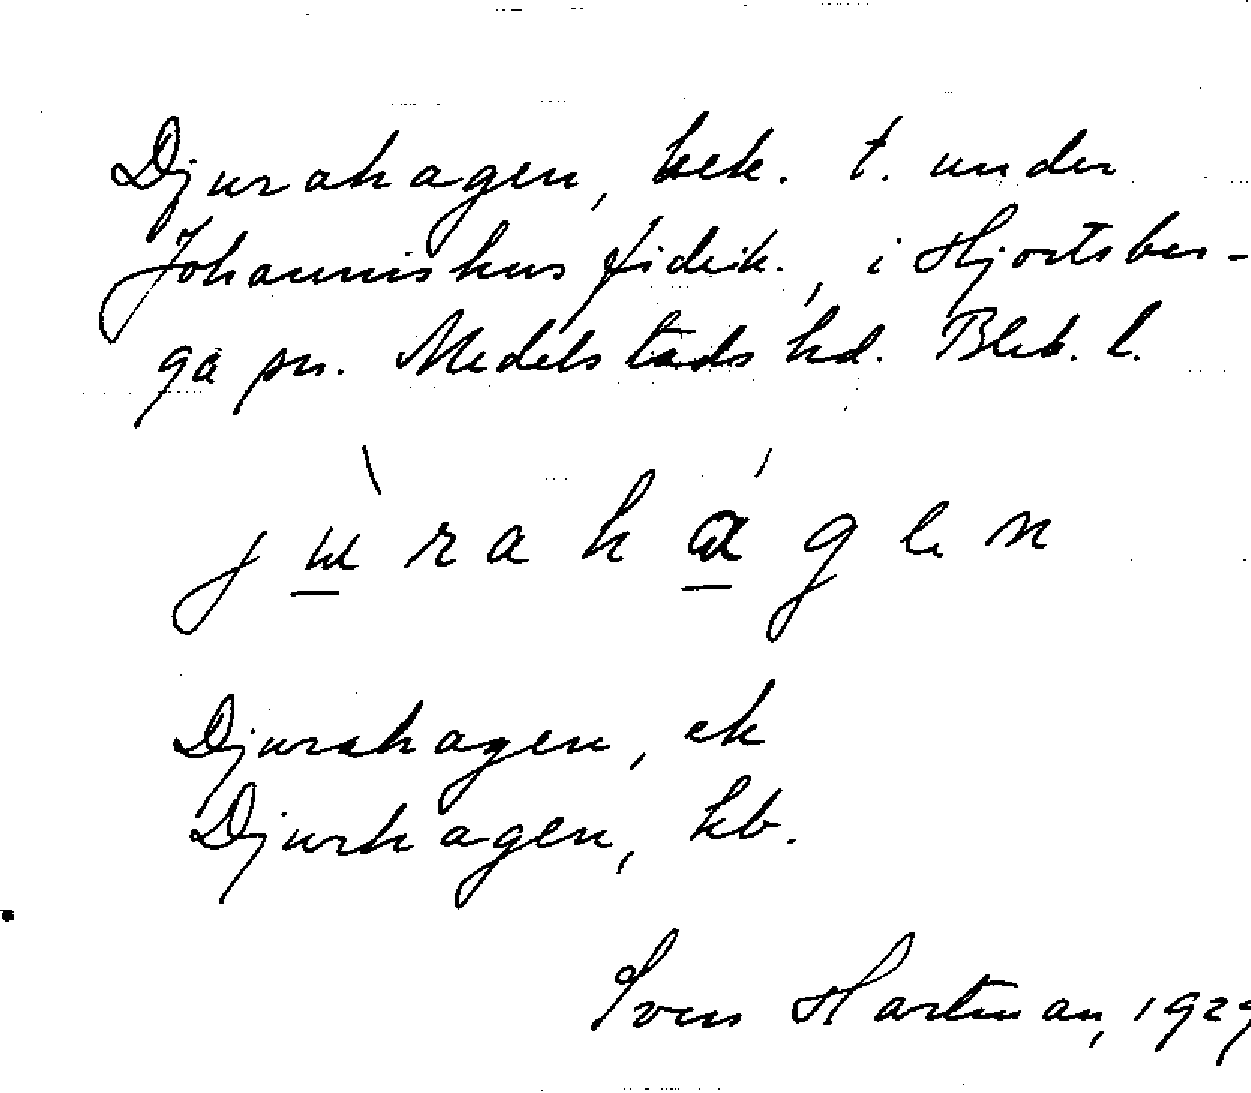 Djurahagen, bek. t. under
Johannishus fideik., i Hjortsber-
ga sn. Medelstads hd. Blek. l.
jùrahágen
Djurahagen, ek
Djurhagen, kb.
Sven Hartman, 1929